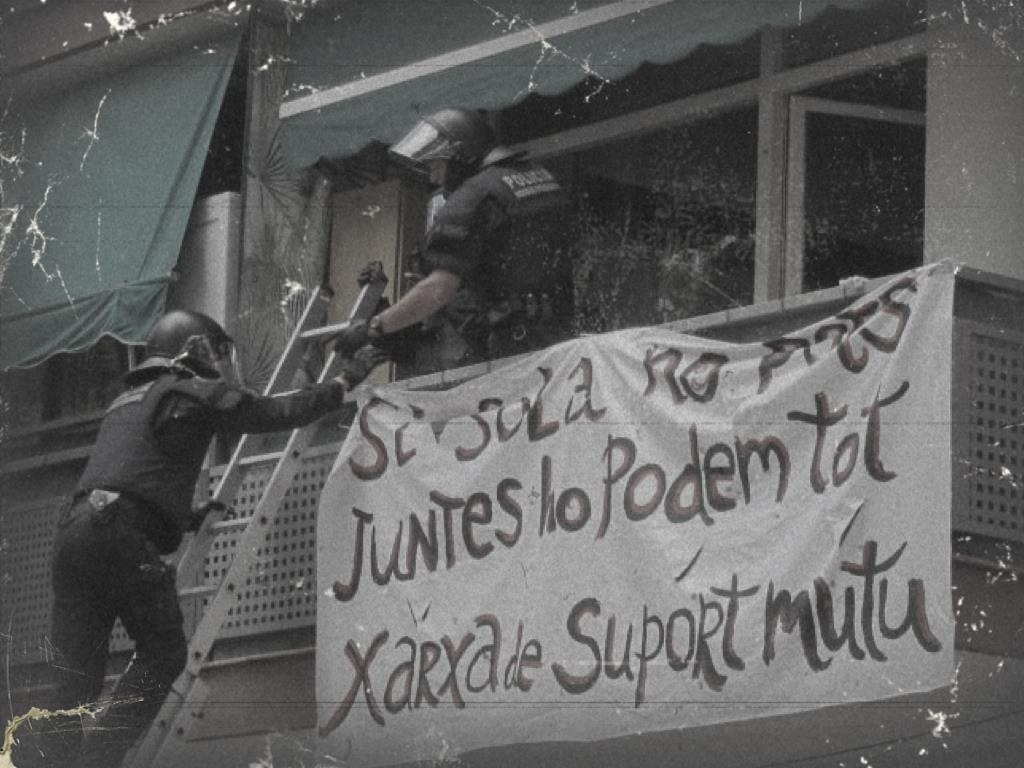 POLICIA
Si sola no pots
JUNTES ho Podem tot
XARXA de Suport mutu